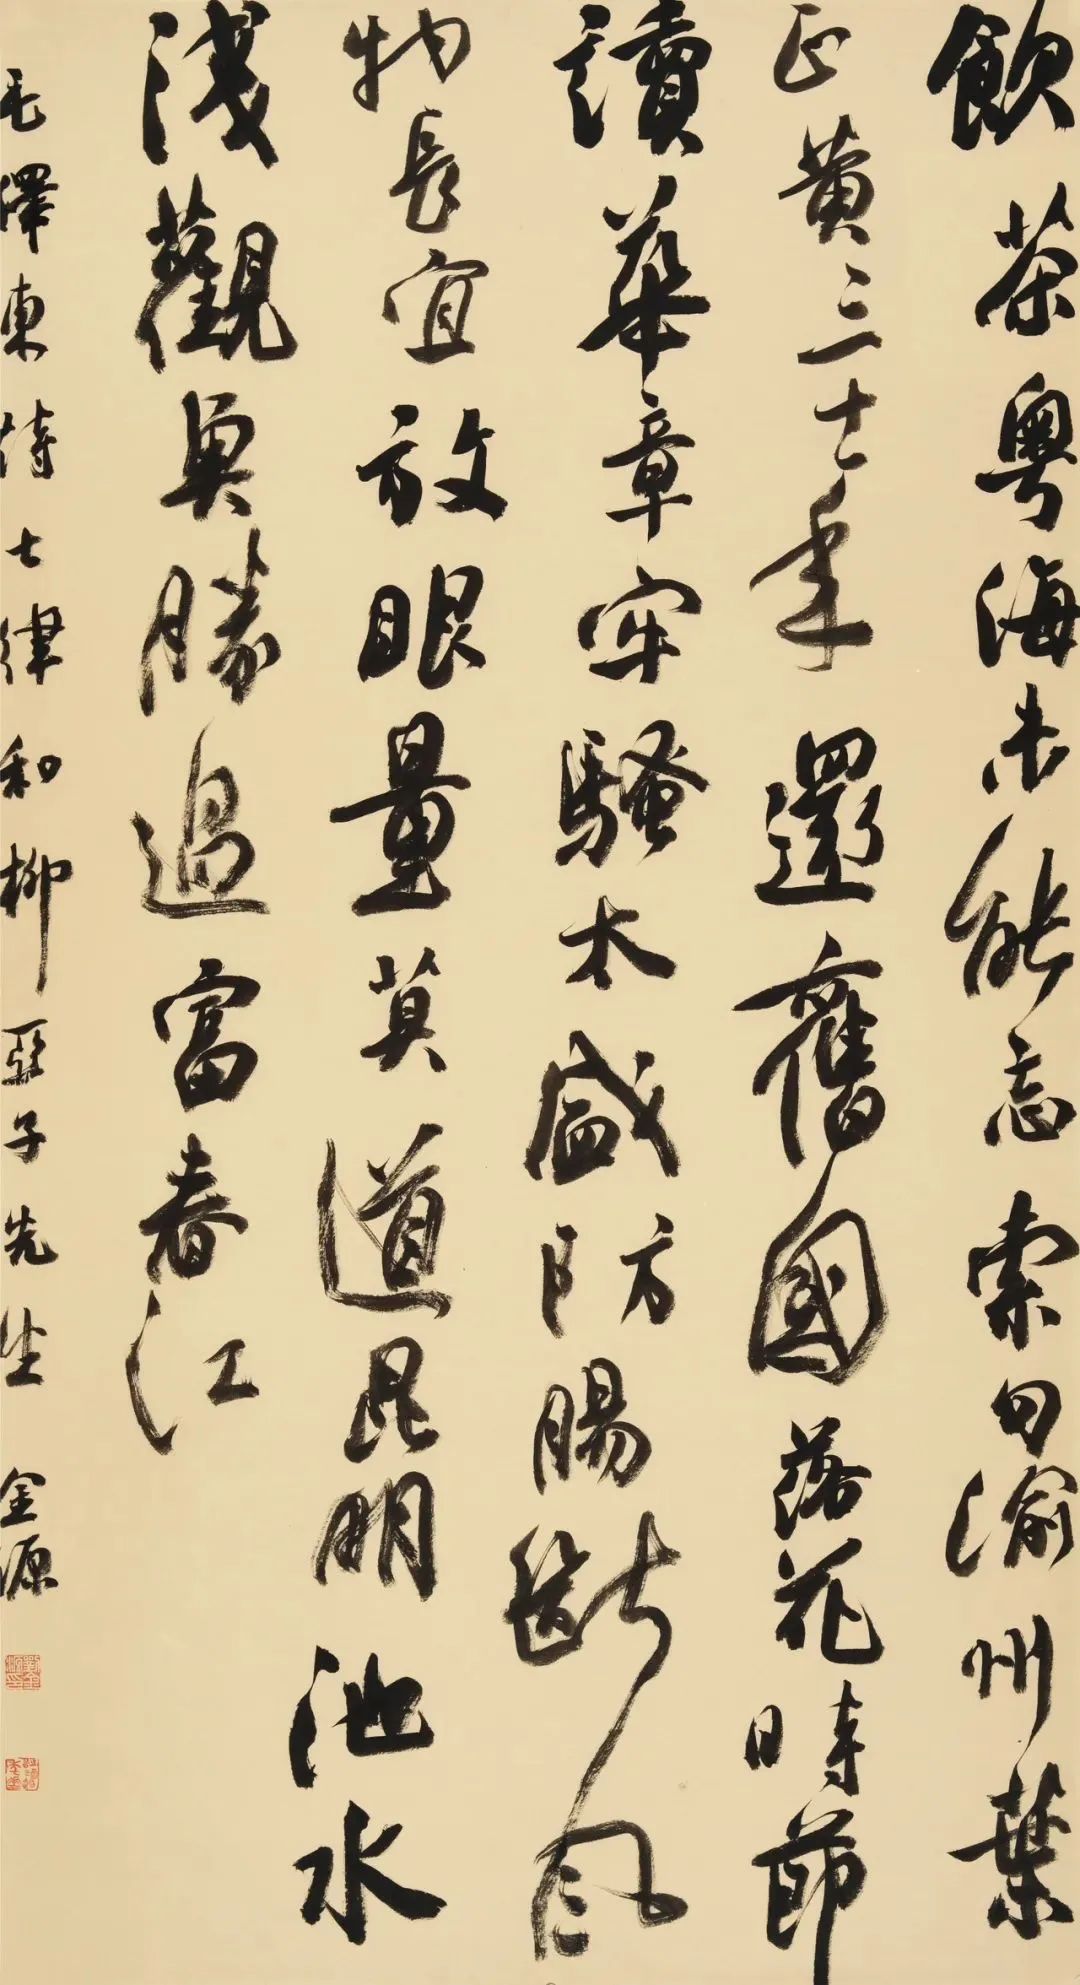 飲茶粤海未能忘索句渝州葉
正黄三十一年還舊國落花時節
讀華章牢騷太盛防腸斷風
物長宜放眼量莫道昆明池水
淺觀魚勝過富春江
毛澤東詩七律和柳亞子先生 金源